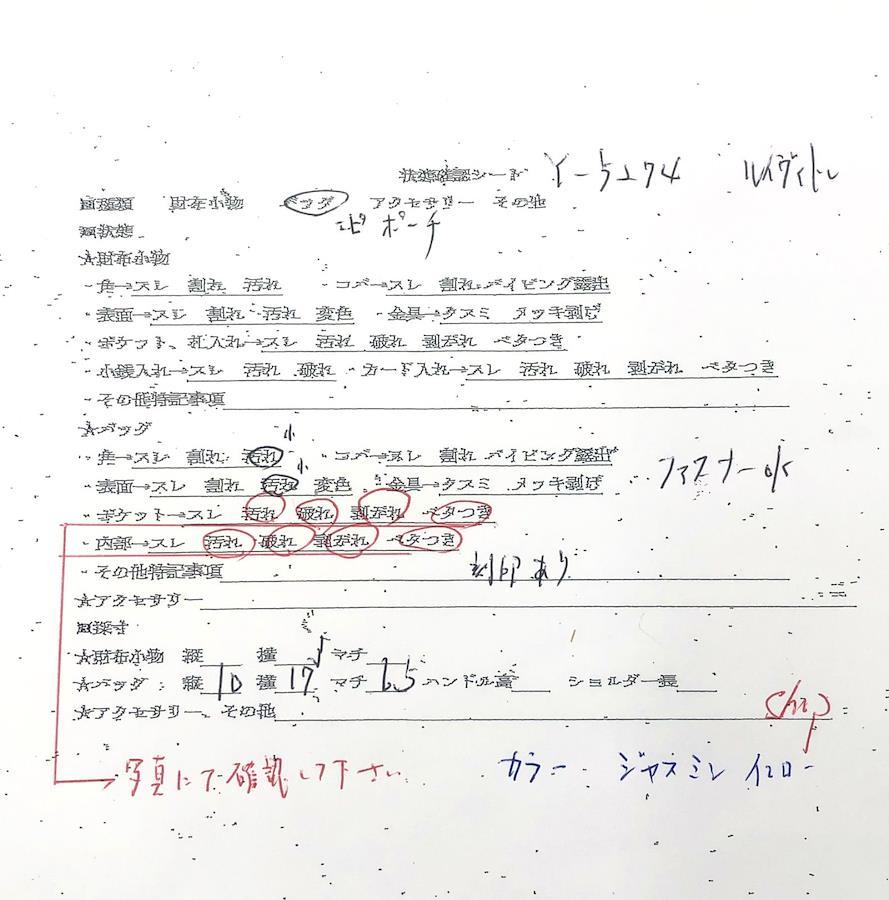 状態確認シート Y-5274 ルイヴィトン
■種類 財布小物 バッグ アクセサリー その他
■状態 エピ ポーチ
★財布小物
・角→スレ 割れ 汚れ ・コバ→スレ 割れ パイピング露出
・表面→スレ 割れ 汚れ 変色 ・金具→クスミ メッキ剥げ
・ポケット、札入れ→スレ 汚れ 破れ 剥がれ ベタつき
・小銭入れ→スレ 汚れ 破れ ・カード入れ→スレ 汚れ 破れ 剥がれ ベタつき
・その他特記事項
★バッグ
小
・角→スレ 割れ 汚れ ・コバ→スレ 割れ パイピング露出
小 ファスナーok
・表面→スレ 割れ 汚れ 変色 ・金具→クスミ メッキ剥げ
・ポケット→スレ 汚れ 破れ 剥がれ ベタつき
・内部→スレ 汚れ 破れ 剥がれ ベタつき
・その他特記事項 刻印あり
★アクセサリー
■採寸
★財布小物 縦 横 マチ
★バッグ : 縦 10 横 17 マチ 6.5 ハンドル高 ショルダー長
★アクセサリー、その他
写真にて確認して下さい カラー ジャスミンイエロー